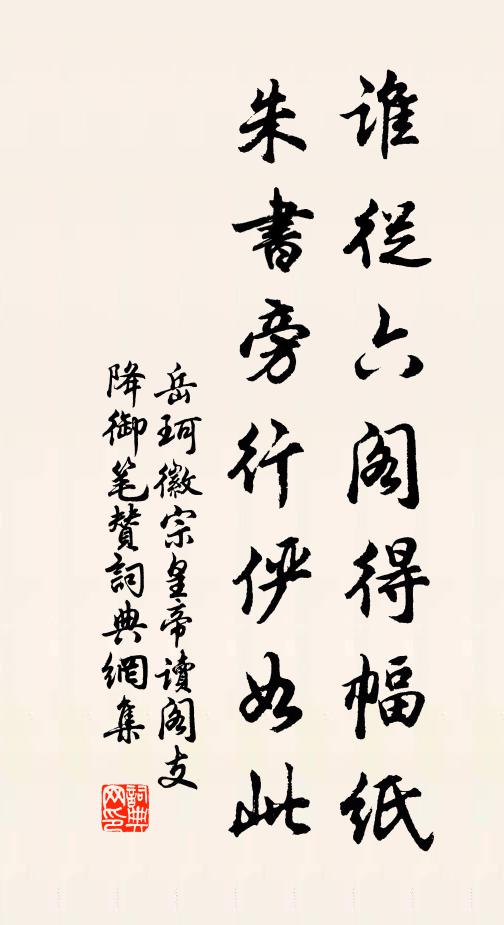 誰從六閣得幅紙
朱書旁行儼如此
岳珂徽宗皇帝讀閣支
降御筆贊詞典網集
詞典网印